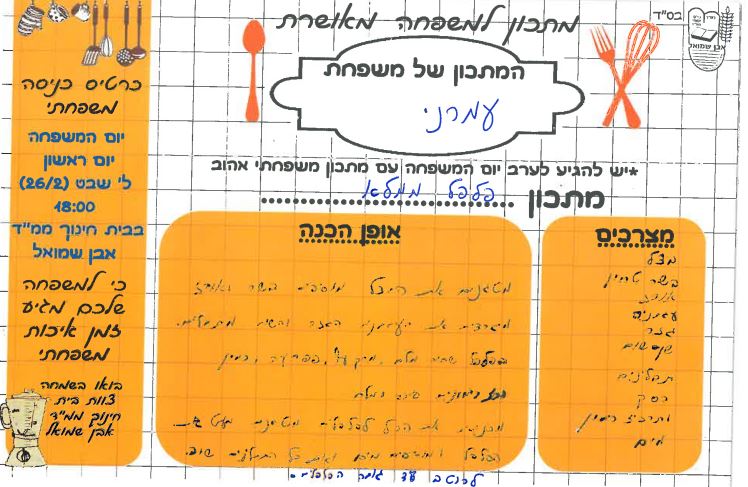 בס"ד
אבן שמואל
מתכון למשפחה מאושרת
המתכון של משפחת
עמרני
*יש להגיע לערב יום המשפחה עם מתכון משפחתי אהוב
מתכון פלפל ממולא
מצרכים
בצל
בשר טחון
אורז
עגבניה
גזר
שום
תבלינים
רסק
ותרכיז רימון
מים
אופן הכנה
מטגנים את הבצל מוספים בשר ואורז
מגרדים את העגבניה הגזר והשום
פלפל שחור מלח, פפריקה, כמון
רימונים סוכר ומלח
מכניסים את הכל לפלפלים מטגנים מעט את
הפלפל ומוסיפים מים ואת כל התבלינים שוב.
לרוטב עד גובה הפלפלים -
כרטיס כניסה
משפחתי
יום המשפחה
יום ראשון
ל' שבט (26/2)
18:00
בבית חינוך ממ"ד
אבן שמואל
כי למשפחה
שלכם מגיע
זמן איכות
משפחתי
בואו בשמחה
צוות בית
חינוך ממ"ד
אבן שמואל